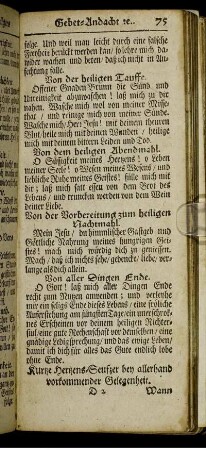 Gebets-Andacht ꝛc. 75
folge. Und weil man leicht durch eine falsche
Freyheit berückt werden kan/ so lehre mich da-
wider wachen und beten/ daß ich nicht in An-
fechtung falle.
Von der heiligen Tauffe.
Offener Gnaden-Brunn die Sünd und
Unreinigkeit abzuwaschen! laß mich zu dir
nahen. Wasche mich wol von meiner Misse-
that / und reinige mich von meiner Sünde.
Wasche mich/ Herr Jesu! mit deinem theuren
Blut/ heile mich mit deinen Wunden / heilige
mich mit deinem bittern Leiden und Tod.
Von dem heiligen Abendmahl.
O Süssigkeit meines Hertzens! o Leben
meiner Seele! o Wesen meines Wesens / und
liebliche Ruhe meines Geistes! süsse mich mit
dir; laß mich satt essen von dem Brod des
Lebens/ und truncken werden von dem Wein
deiner Liebe.
Von der Vorbereitung zum heiligen
Nachtmahl.
Mein Jesu/ du himmlischer Gastgeb und
Göttliche Nahrung meines hungrigen Gei-
stes! mach mich würdig dich zu geniessen.
Mach/ daß ich nichts sehe/ gedencke/ liebe/ ver-
lange als dich allein.
Von aller Dingen Ende.
O Gott! laß mich aller Dingen Ende
recht zum Nutzen anwenden; und verleyhe
mir ein seligs Ende dieses Lebens/ eine fröliche
Aufferstehung am jüngsten Tage/ ein unerschrock-
nes Erscheinen vor deinem heiligen Richter-
stul/ eine gute Rechenschafft vor demselben/ eine
gnädige Ledigsprechung/ und das ewige Leben/
damit ich dich für alles das Gute endlich lobe
ohne Ende.
Kurtze Hertzens-Seufzer bey allerhand
vorkommender Gelegenheit.
D 2 Wann